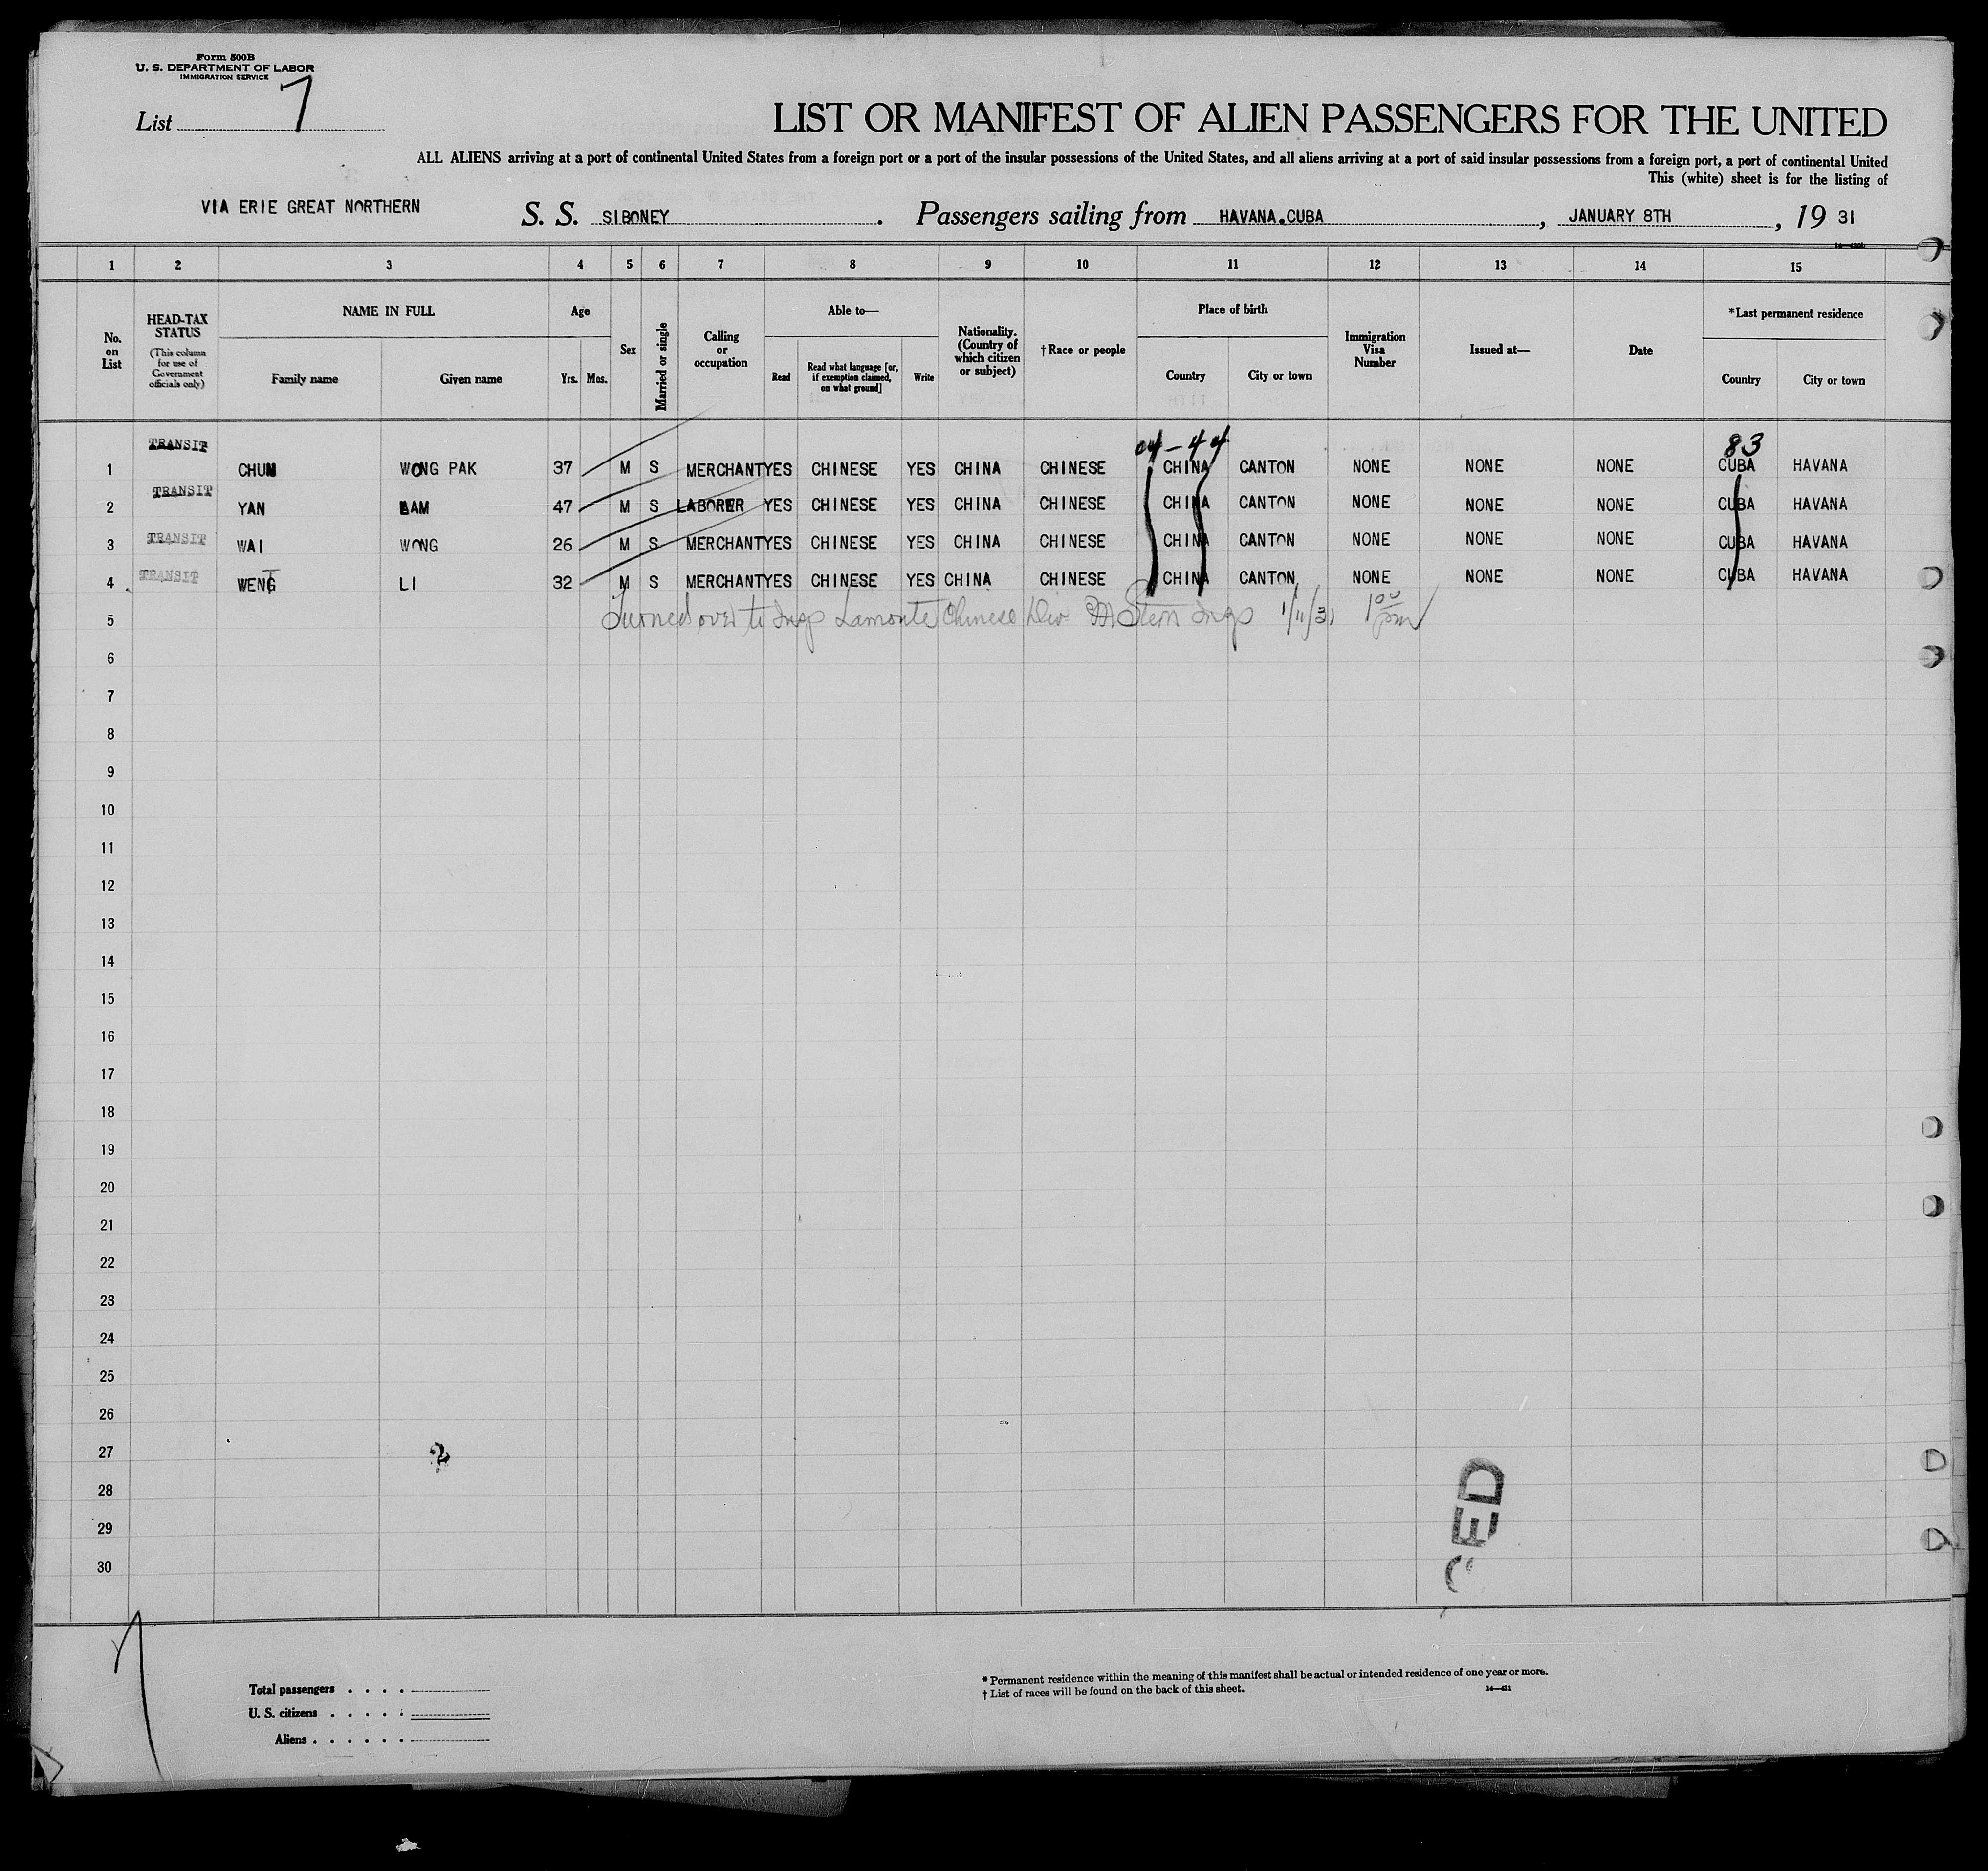 Form 500B
U. S. DEPARTMENT OF LABOR
IMMIGRATION SERVICE
List 7
LIST OR MANIFEST OF ALIEN PASSENGERS FOR THE UNITED
ALL ALIENS arriving at a port of continental United States from a foreign port or a port of the insular possessions of the United States, and all aliens arriving at a port of said insular possessions from a foreign port, a port of continental United
This (white) sheet is for the listing of
VIA ERIE GREAT NORTHERN S. S. SIBONEY. Passengers sailing from HAVANA.CUBA, JANUARY 8TH, 19 31
1 2 3 4 5 6 7 8 9 10 11 12 13 14 15
No. on List
HEAD-TAX STATUS
(This column for use of Government officials only)
NAME IN FULL
Family name Given name
Age
Yrs. Mos.
Sex
Married or single
Calling or occupation
Able to—
Read
Read what language [or, if exemption claimed, on what ground]
Write
Nationality. (Country of which citizen or subject)
†Race or people
Place of birth
Country City or town
Immigration Visa Number
Issued at—
Date
*Last permanent residence
Country City or town
04-44 83
TRANSIT
1 CHUM WONG PAK 37 M S MERCHANT YES CHINESE YES CHINA CHINESE CHINA CANTON NONE NONE NONE CUBA HAVANA
TRANSIT
2 YAN LAM 47 M S LABORER YES CHINESE YES CHINA CHINESE CHINA CANTON NONE NONE NONE CUBA HAVANA
TRANSIT
3 WAI WONG 26 M S MERCHANT YES CHINESE YES CHINA CHINESE CHINA CANTON NONE NONE NONE CUBA HAVANA
TRANSIT
4 WENG LI 32 M S MERCHANT YES CHINESE YES CHINA CHINESE CHINA CANTON NONE NONE NONE CUBA HAVANA
Turned over to Insp Lamonte Chinese Div Stern Insp 1/11/31 1 00 pm
5
6
7
8
9
10
11
12
13
14
15
16
17
18
19
20
21
22
23
24
25
26
27 ?
28
29
30
Total passengers
U. S. citizens
Aliens
* Permanent residence within the meaning of this manifest shall be actual or intended residence of one year or more.
† List of races will be found on the back of this sheet.
14—431